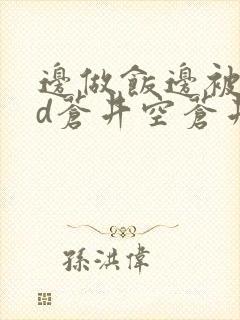 邊做飯邊被
d蒼井空蒼井
孫洪偉